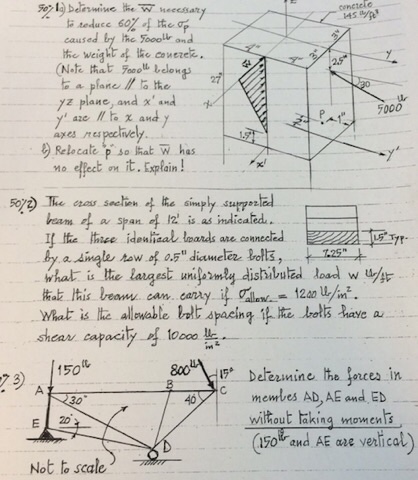 50% 1a) Determine the W necessary
to reduce 60% of the σp
caused by the 5000 lb and
the weight of the concrete.
(Note that 5000 lb belongs
to a plane // to the
yz plane, and x' and
y' are // to x and y
axes respectively.
b) Relocate "p" so that W has
no effect on it. Explain!
concrete
145 lb/ft³
z
4"
4"
3"
3"
2.5"
y
W
27"
x
30
5000 lb
P
1"
1.5"
x'
y'
50% 2) The cross section of the simply supported
beam of a span of 12' is as indicated.
If the three identical boards are connected
by a single row of 0.5" diameter bolts,
what is the largest uniformly distributed load w lb/ft
that this beam can carry if σallow = 1200 lb/in².
What is the allowable bolt spacing if the bolts have a
shear capacity of 10000 lb/in².
1.5" Typ.
7.25"
% 3)
150 lb
800 lb
15°
A
B
C
30°
40°
E
20°
D
Not to scale
Determine the forces in
membes AD, AE and ED
without taking moments
(150 lb and AE are vertical)